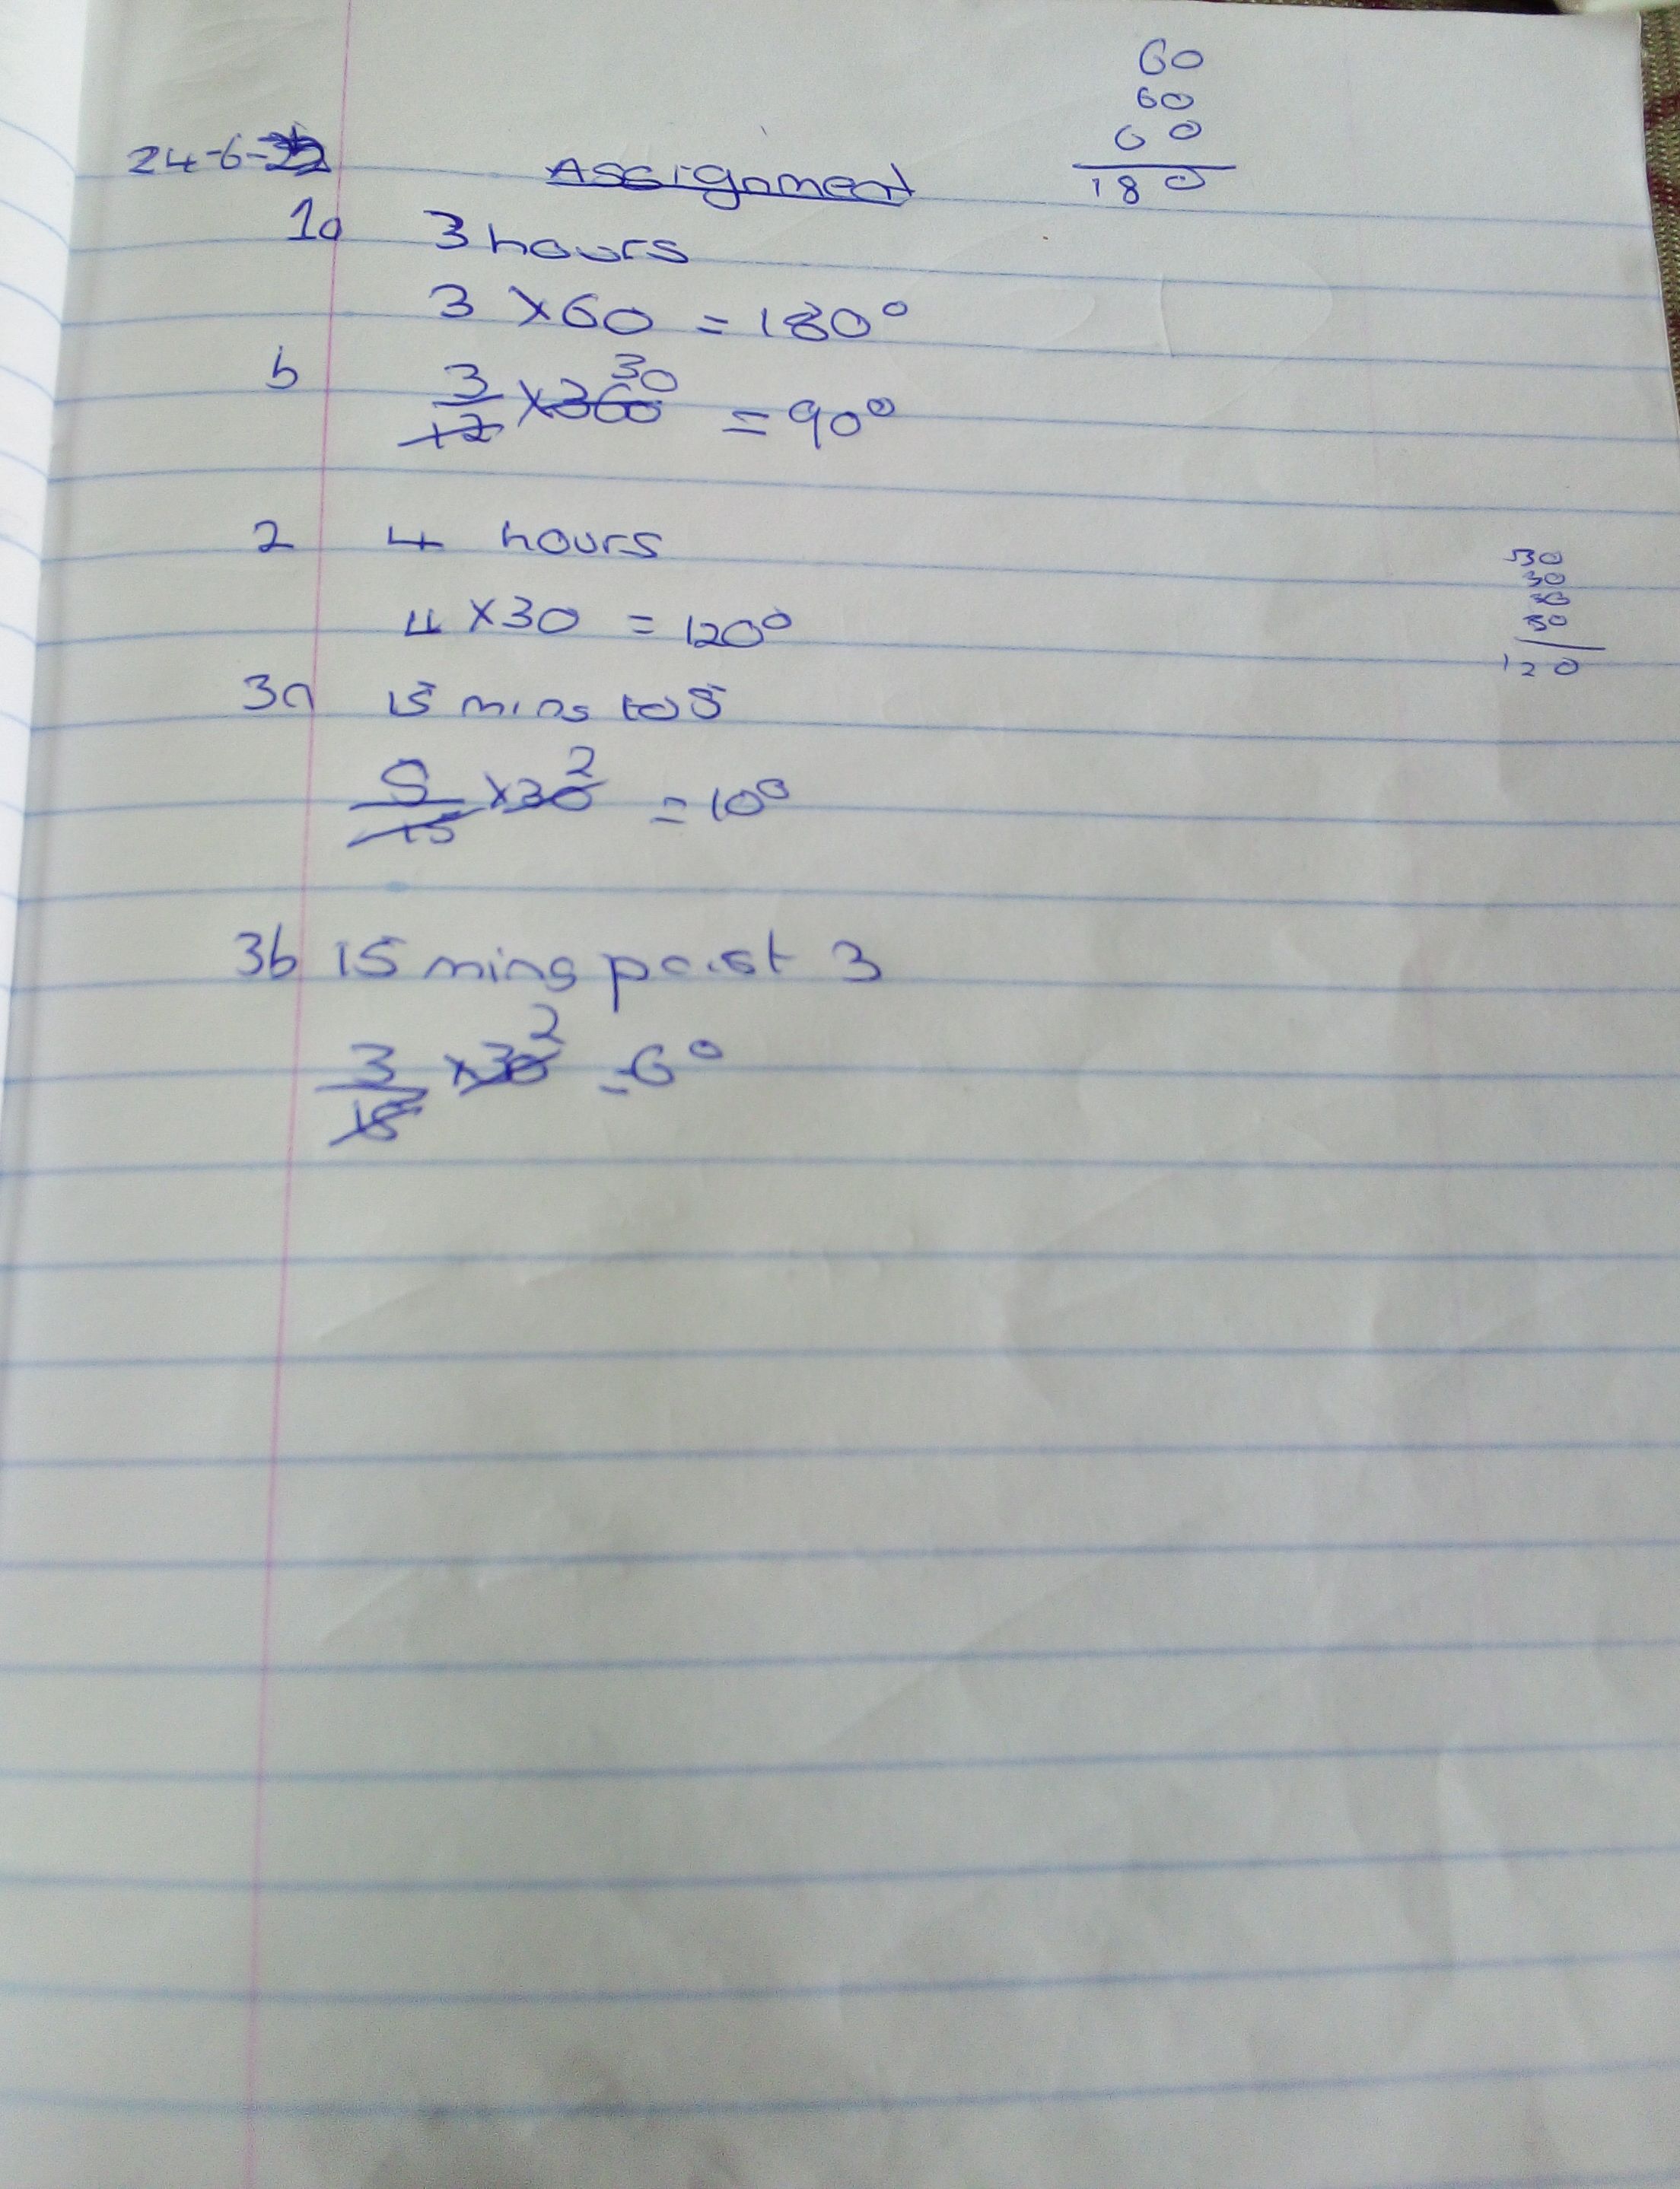 60
60
60
180
24-6-22
Assignment
1a 3 hours
3 × 60 = 180°
b 3/12 × 360 30 = 90°
2 4 hours
4 × 30 = 120°
30
30
30
120
3a 15 mins to 5
5/15 × 30 2 = 10°
3b 15 mins past 3
3/15 × 30 2 = 6°